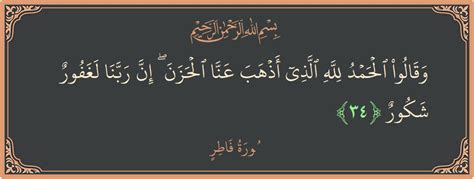 بِسْمِ اللَّهِ الرَّحْمَٰنِ الرَّحِيمِ
وَقَالُوا۟ ٱلْحَمْدُ لِلَّهِ ٱلَّذِىٓ أَذْهَبَ عَنَّا ٱلْحَزَنَ ۖ إِنَّ رَبَّنَا لَغَفُورٌ
شَكُورٌ ﴿٣٤﴾
سُورَةُ فَاطِرٍ